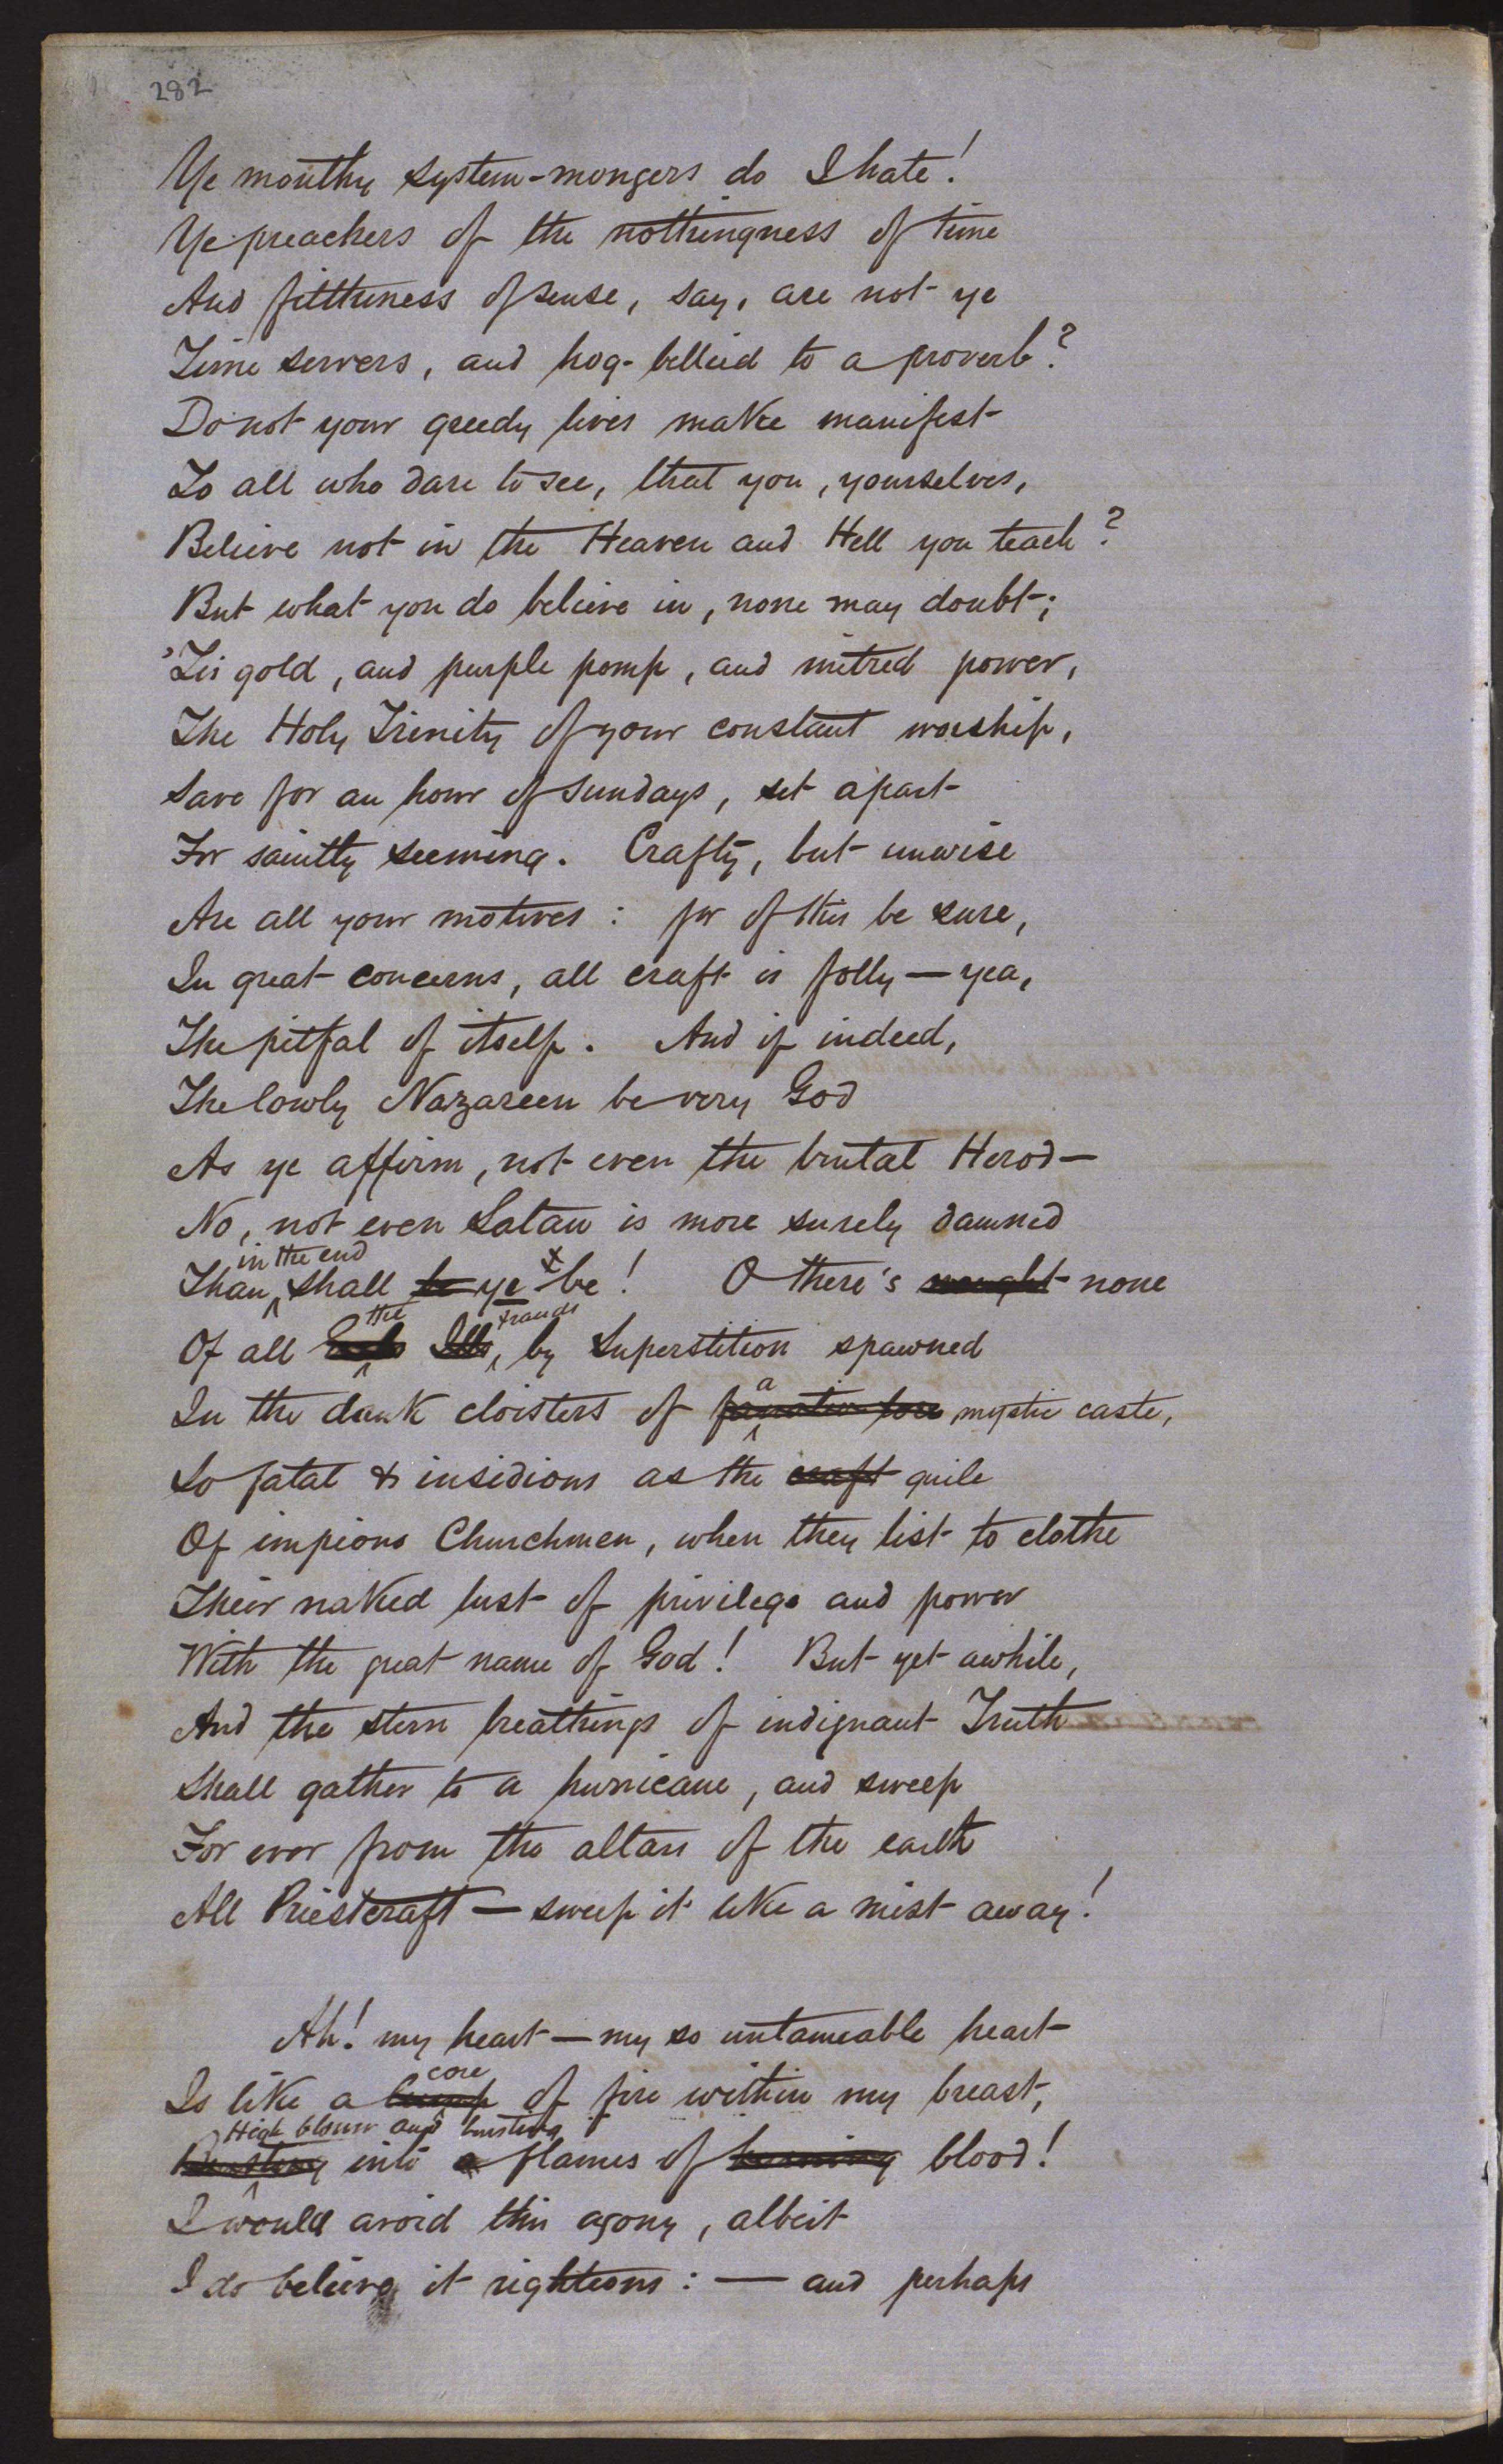 282
Ye mouthy system-mongers do I hate!
Ye preachers of the nothingness of time
And filthiness of sense, say, are not ye
Time servers, and hog-bellied to a proverb?
Do not your greedy lives make manifest
To all who dare to see, that you, yourselves,
Believe not in the Heaven and Hell you teach?
But what you do believe in, none may doubt;
'Tis gold, and purple pomp, and mitred power,
The Holy Trinity of your constant worship,
Save for an hour of Sundays, set apart
For saintly seeming. Crafty, but unwise
Are all your motives: for of this be sure,
In great concerns, all craft is folly — yea,
The pitfal of itself. And if indeed,
The lowly Nazareen be very God
As ye affirm, not even the brutal Herod —
No, not even Satan is more surely damned
in the end
Than shall be ye be! O there's nought none
the frauds
Of all Ills, by Superstition spawned
a
In the dank cloisters of mystic caste,
So fatal & insidious as the craft guile
Of impious Churchmen, when they list to clothe
Their naked lust of privilege and power
With the great name of God! But yet awhile,
And the stern breathings of indignant Truth
Shall gather to a hurricane, and sweep
For ever from the altars of the earth
All Priestcraft — sweep it like a mist away!
Ah! my heart — my so untameable heart
core
Is like a lump of fire within my breast,
High blown and bursting
Bursting into a flames of burning blood!
I would avoid this agony, albeit
I do believe it righteous: — and perhaps